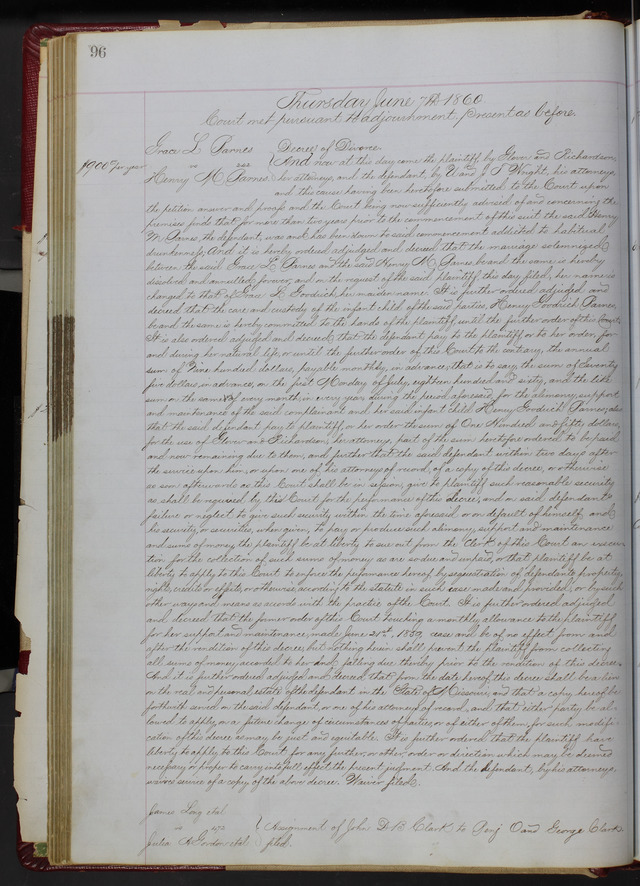 96
Thursday June 7th 1860.
Court met pursuant to adjournment, present as before.
Grace L. Barnes } Decree of Divorce.
$900 per year vs And now at this day come the plaintiff by Glover and Richardson
Henry M. Barnes. her attorneys, and the defendant, by U and J T Wright, his attorneys,
and this cause having been heretofore submitted to the Court upon
the petition answer and proofs and the Court being now sufficiently advised of and concerning the
premises finds that for more than two years prior to the commencement of this suit the said Henry
M. Barnes, the defendant, was and has been down to said commencement addicted to habitual
drunkenness, And it is hereby ordered adjudged and decreed that the marriage solemnized
between the said Grace L Barnes and the said Henry M. Barnes, be and the same is hereby
dissolved and annulled forever, and on the request of the said plaintiff this day filed, her name is
changed to that of Grace L Goodrich her maiden name. It is further ordered adjudged and
decreed that the care and custody of the infant child of the said parties, Henry Goodrich Barnes,
be and the same is hereby committed to the hands of the plaintiff until the further order of this Court,
It is also ordered adjudged and decreed, that the defendant pay to the plaintiff, or to her order, for
and during her natural life, or until the further order of this Court to the contrary, the annual
sum of Nine hundred dollars, payable monthly, in advance, that is to say, the sum of Seventy
five dollars in advance, on the first Monday of July, eighteen hundred and sixty, and the like
sum on the same of every month in every year during the period aforesaid, for the alimony, support
and maintenance of the said complainant and her said infant child Henry Goodrich Barnes, also
that the said defendant pay to plaintiff, or her order the sum of One Hundred and fifty dollars,
for the use of Glover and Richardson, her attorneys, part of the sum heretofore ordered to be paid
and now remaining due to them, and further that the said defendant within two days after
the service upon him, or upon one of his attorneys of record, of a copy of this decree, or otherwise
as soon afterwards as this Court shall be in session, give to plaintiff such reasonable security
as shall be required by this Court for the performance of this decree, and on said defendants
failure or neglect to give such security within the time aforesaid, or on default of himself, and
his security or securities, when given, to pay or produce such alimony, support and maintenance
and sums of money the plaintiff be at liberty to sue out from the Clerk of this Court an execu-
tion for the collection of such sums of money as are so due and unpaid, or that plaintiff be at
liberty to apply to this Court to enforce the performance hereof by sequestration of defendants property,
rights, credits or effects, or otherwise, according to the statute in such case made and provided, or by such
other ways and means as accords with the practice of the Court. It is further ordered adjudged
and decreed that the former order of this Court touching a monthly allowance to the plaintiff
for her support and maintenance, made June 21st 1859, cease and be of no effect from and
after the rendition of this decree, but nothing herein shall prevent the plaintiff from collecting
all sums of money accorded to her and falling due thereby prior to the rendition of this decree.
And it is further ordered adjudged and decreed that from the date hereof this decree shall be a lien
on the real and personal estate of the defendant in the State of Missouri, and that a copy hereof be
forthwith served on the said defendant, or one of his attorneys of record, and, that either party be al-
lowed to apply, on a future change of circumstances of parties, or of either of them, for such modifi-
cation of this decree as may be just and equitable. It is further ordered that the plaintiff have
liberty to apply to this Court for any further or other order or direction which may be deemed
necessary or proper to carry into full effect the present judgment. And the defendant, by his attorneys
waives service of a copy of the above decree. Waiver filed.
James Long et al
vs } Assignment of John D B Clark to Benj O and George Clark
Julia A Gordon et al filed.